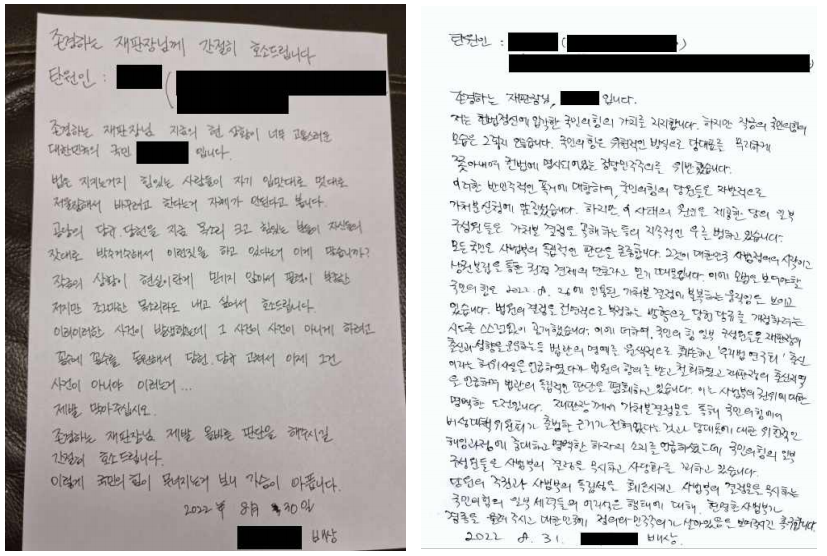 존경하는 재판장님께 간절히 호소드립니다
탄원인 :
존경하는 재판장님 지금의 현 상황이 너무 고통스러운
대한민국의 국민 입니다.
법은 지키는거지 힘있는 사람들이 자기 입맛대로 멋대로
바꾸려고 한다는거 자체가 안된다고 봅니다.
공당의 당규 당헌을 지금 목소리 크고 힘있는 분들이 자신들의
잣대로 이런짓을 하고 있다는거 이게 맞습니까?
작금의 상황이 현실이란게 믿기지 않아서 필력이 부족한
저지만 조그마한 목소리라도 내고 싶어서 호소드립니다.
이러이러한 사건이 발생했는데 그 사건이 사건이 아니게 하려고
꼼수에 꼼수를 동원해서 당헌.당규 고쳐서 이제 그건
사건이 아니야 이러는거...
제발 막아주십시오.
존경하는 재판장님 제발 올바른 판단을 해주시길
간절히 호소드립니다.
이렇게 국민의힘이 무너지는거 보니 가슴이 아픕니다.
2022年 8月 30일
배상
탄원인 : ( )
존경하는 재판장님, 입니다.
저는 헌법정신에 입각한 국민의힘의 가치를 지지합니다. 하지만 작금의 국민의힘의
모습은 그렇지 않습니다. 국민의힘은 위헌적인 방식으로 당대표를 무리하게
쫓아내며 헌법에 명시되어있는 정당민주주의를 위반했습니다.
이러한 반민주적인 폭거에 대항하여, 국민의힘의 당원들은 자발적으로
가처분신청에 동참했습니다. 하지만 이 사태의 원인을 제공한 당의 일부
구성원들은 가처분 결정을 하는 등의 우를 범하고 있습니다.
모든 국민은 사법부의 독립적인 판단을 존중합니다. 그것이 대한민국 사법정의의 시작이고
믿기 때문입니다. 이에 모범을 보여야할
국민의힘은 2022. 8. 26에 인용된 가처분 결정에 불복하는 움직임을 보이고
있습니다. 법원의 결정을 전면적으로 부정하는 방향으로 당헌 당규를 개정하려는
시도를 스스럼없이 공개했습니다. 이에 더하여, 국민의힘 일부 구성원들은 재판장의
출신과 성향을 운운하는등 법관의 명예를 '우리법 연구회' 출신
이라는 허위사실을 언급하였다가 법원의 반박을 받고 철회하였고 재판장의 출신지역
을 언급하며 법관의 독립적인 판단을 폄훼하고 있습니다. 이는 사법부의 권위에 대한
명백한 도전입니다. 재판장께서 가처분결정문을 통해 국민의힘에게
비상대책위원회가 출범할 근거가 전혀없다는 것과 당대표에 대한 위헌적인
해임과정에 중대하고 명백한 하자의 소지를 언급하셨는데 국민의힘의 일부
구성원들은 사법부의 결정을 무시하고 꾀하고 있습니다.
당원의 주권과 사법부의 독립성을 훼손시키고 사법부의 결정문을 무시하는
국민의힘의 일부 세력들의 이기적인 행태에 대해, 현명한 사법부가
경종을 울려 주시고 대한민국에 정의와 민주주의가 살아있음을 보여주시길 촉구합니다
2022 8. 31. 배상.